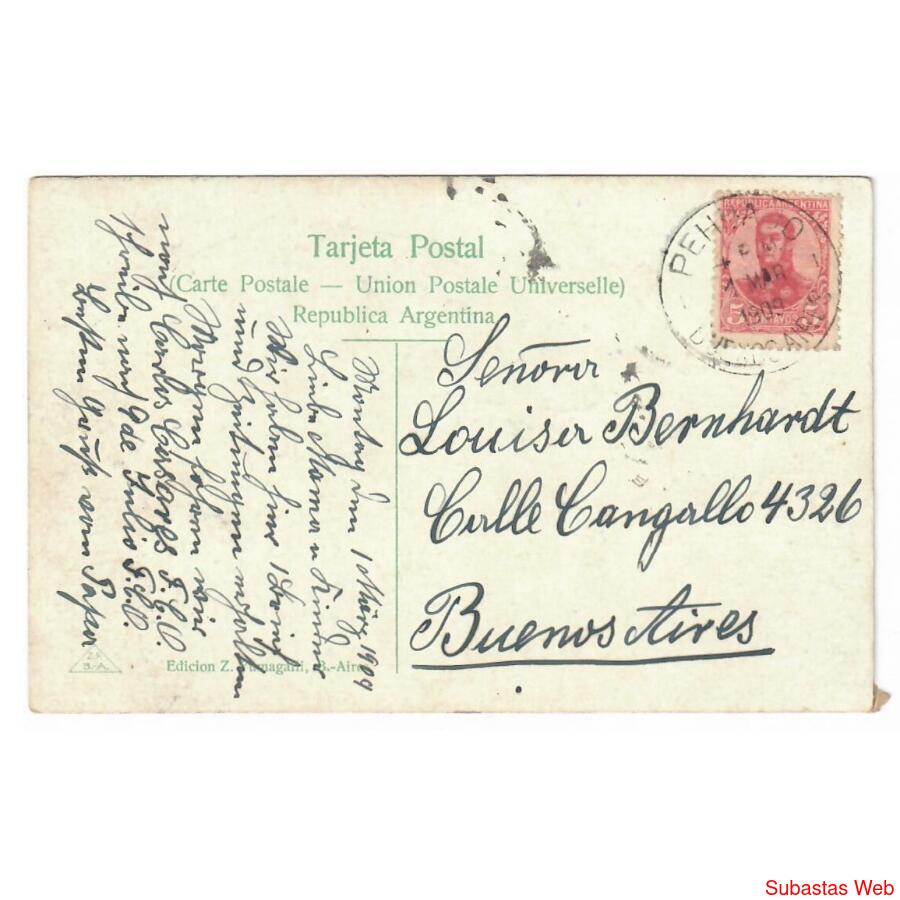 Tarjeta Postal
(Carte Postale — Union Postale Universelle)
Republica Argentina
REPUBLICA ARGENTINA
5 CENTAVOS
PEHUAJO
MAR
1909
BUENOS AIRES
Señora
Louisa Bernhardt
Calle Cangallo 4326
Buenos Aires
Montag den 1 März 1909
Liebe Mama u Kinder
Wir haben hier 1 Brief
und Zeitungen erhalten
Morgen fahren wir
nach Carlos Casares F.C.O.
und 9 de Julio F.C.O.
Gruß vom Papa
Edicion Z. Fumagalli, B.-Aires
Z.F.
B.-A.
Subastas Web